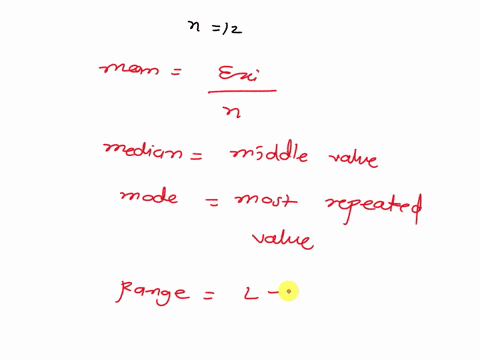 n = 12
mean = Σxi
n
median = middle value
mode = most repeated
value
Range = L -